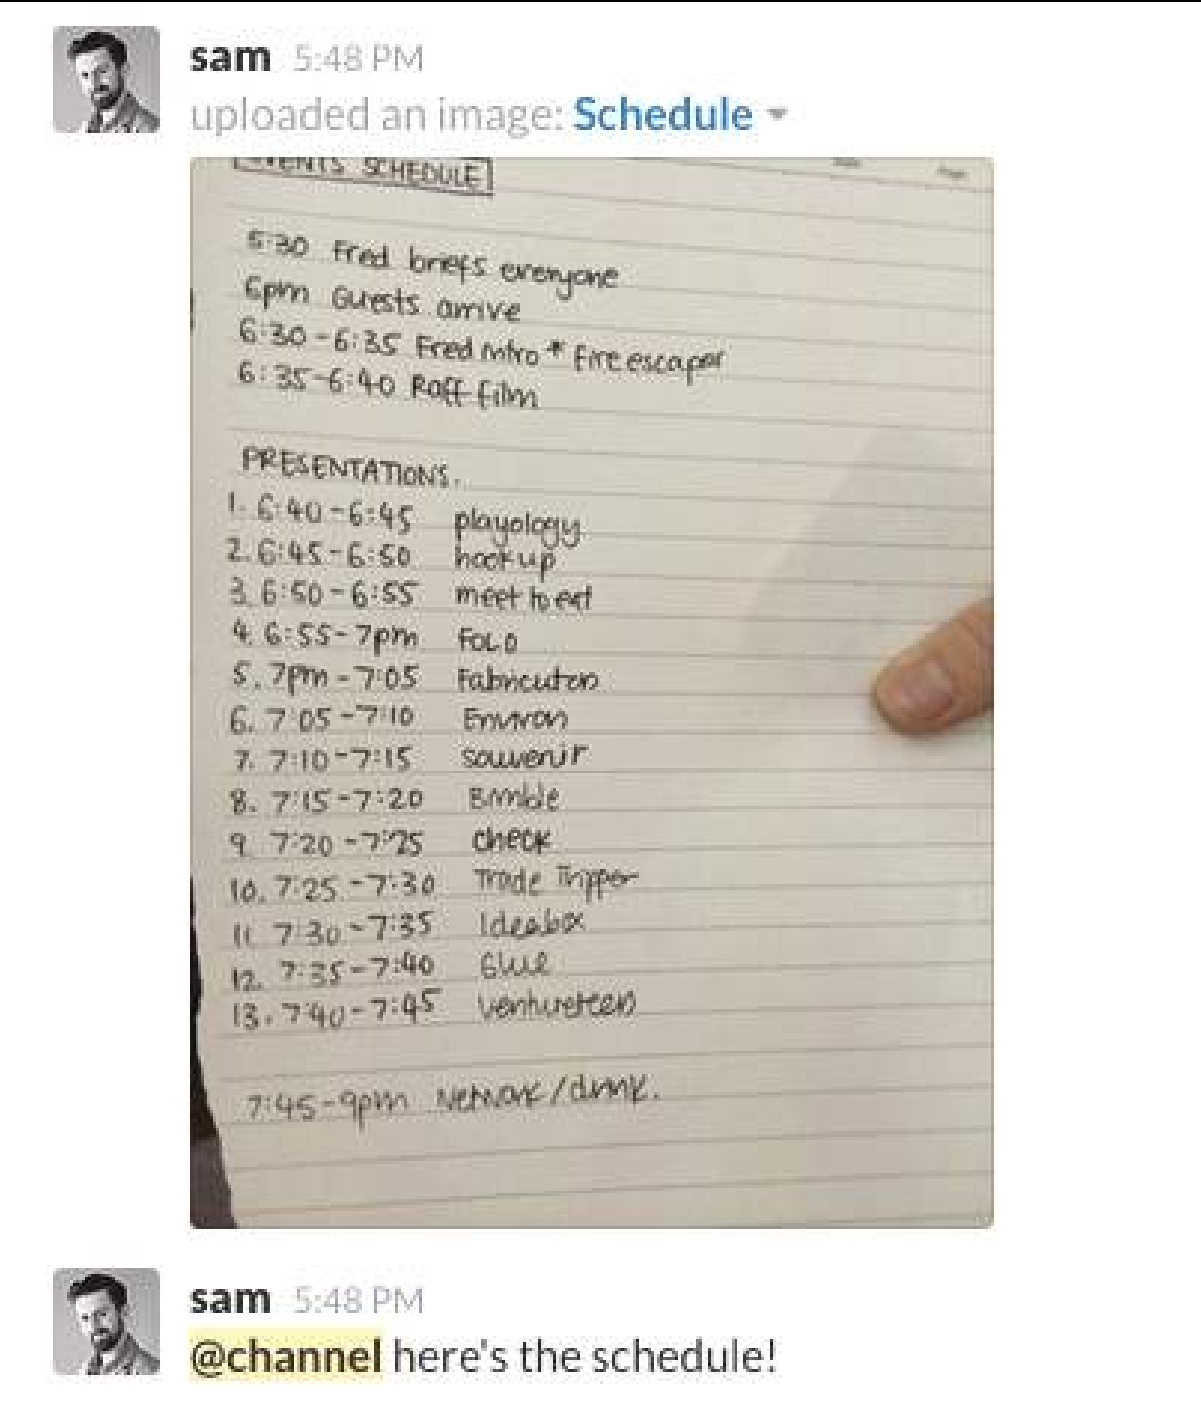 sam 5:48 PM
uploaded an image: Schedule
EVENTS SCHEDULE
5:30 Fred briefs everyone
6pm Guests arrive
6:30-6:35 Fred intro * Fire escapes
6:35-6:40 Raff film
PRESENTATIONS.
1. 6:40-6:45 playology
2. 6:45-6:50 hook up
3. 6:50-6:55 meet to eat
4. 6:55-7pm FOLO
5. 7pm-7:05 Fabricuten
6. 7:05-7:10 Environ
7. 7:10-7:15 souvenir
8. 7:15-7:20
9. 7:20-7:25 check
10. 7:25-7:30 Trade Tripper
11. 7:30-7:35 Ideabox
12. 7:35-7:40 Glue
13. 7:40-7:45
7:45-9pm Network/drink.
sam 5:48 PM
@channel here's the schedule!